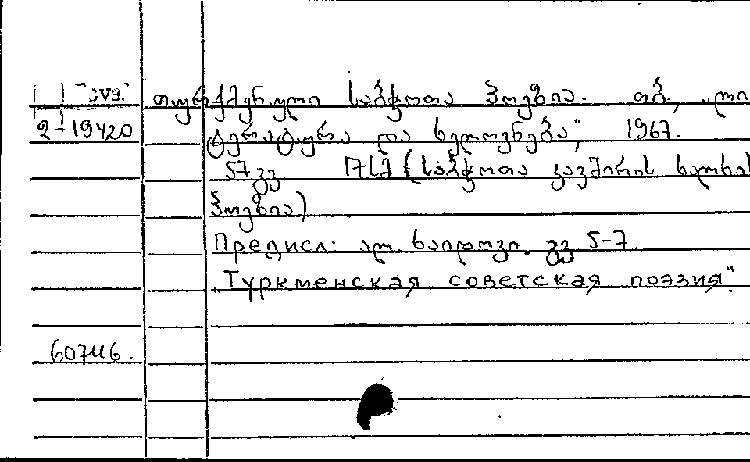 თურქმენული საბჭოთა პოეზია. თბ., „ლი
2-19420 ტერატურა და ხელოვნება", 1967.
57 გვ (საბჭოთა კავშირის ხალხთა
პოეზია)
Предисл: ალ. გვ. 5-7
"Туркменская советская поэзия"
607416.